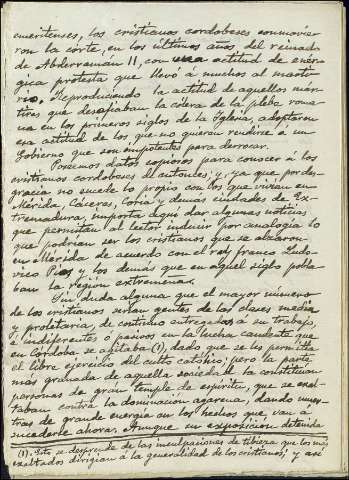 emeritenses, los cristianos cordobeses conmovie-
ron la corte, en los últimos años del reinado
de Abderraman II, con una actitud de enér-
gica protesta que llevó á muchos al marti-
rio. Reproduciendo la actitud de aquellos már-
tires que desafiaban la cólera de la plebe roma-
na en los primeros siglos de la Iglesia, adoptaron
esa actitud de los que no quieren rendirse á un
Gobierno que son impotentes para derrocar.
Poseemos datos copiosos para conocer á los
cristianos cordobeses de entonces; y, ya que por des-
gracia no sucede lo propio con los que vivian en
Mérida, Cáceres, Coria y demás ciudades de Ex-
tremadura, importa aquí dar algunas noticias
que permitan al lector inducir por analogía lo
que podrían ser los cristianos que se alzaron
en Mérida de acuerdo con el rey franco Ludo-
vico Pio, y los demás que en aquel siglo pobla-
ban la region extremeña.
Sin duda alguna que el mayor número
de los cristianos serían gentes de las clases media
y proletaria, de continuo entregadas á su trabajo,
é indiferentes ó pasivos en la lucha candente que
en Córdoba se agitaba (1), dado que se les permitía
el libre ejercicio del culto católico; pero la parte
más granada de aquella sociedad la constituían
personas de gran temple de espíritu, que se exal-
taban contra la dominación agarena, dando mues-
tras de grande energía en los hechos que van á
sucederse ahora. Aunque su exposición detenida
(1). Esto se desprende de las inculpaciones de tibieza que los más
exaltados dirigían á la generalidad de los cristianos; y así